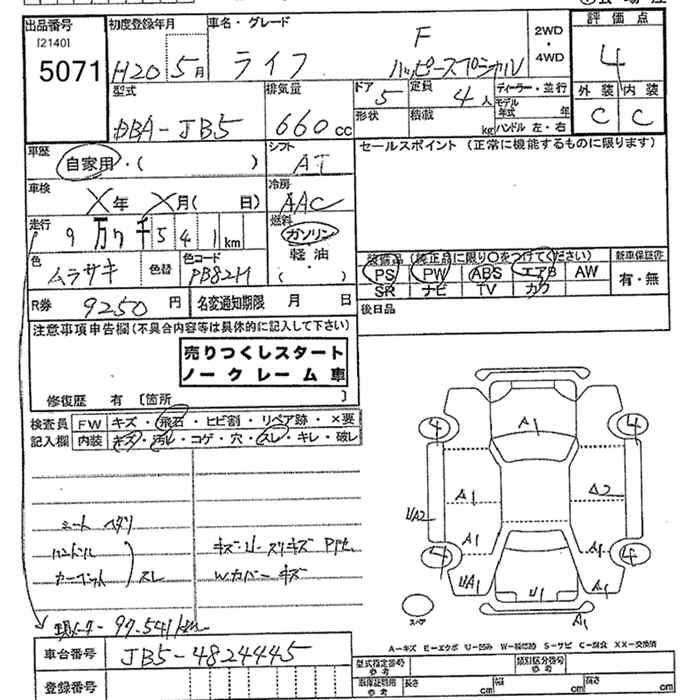 出品番号
[2140]
5071
初度登録年月
H20 5月
車名・グレード
ライフ
F
ハッピースペシャル
2WD
・
4WD
評価点
4
外装 内装
C C
型式
DBA-JB5
排気量
660cc
ドア
5
定員
4人
形状
積載
kg
ディーラー・並行
モデル年式 年
ハンドル 左・右
車歴
自家用・( )
シフト
AT
車検
X年 X月( 日)
冷房
AAC
走行
9万7千541km
燃料
ガソリン
軽油
・
( )
色
ムラサキ
色替
色コード
PB82M
R券
9250円
名変通知期限 月 日
セールスポイント (正常に機能するものに限ります)
装備品(純正品に限り○をつけてください)
PS PW ABS エアB AW
SR ナビ TV カワ
新車保証書
有・無
後日品
注意事項申告欄(不具合内容等は具体的に記入して下さい)
売りつくしスタート
ノークレーム車
修復歴 有〔箇所 〕
検査員
記入欄
FW キズ・飛石・ヒビ割・リペア跡・×要
内装 キズ・汚れ・コゲ・穴・スレ・キレ・破レ
シート ヘタリ
ハンドル
カーペット スレ
キズ・U・スリキズ
Wカバー キズ
現メーター 97.541km
4 4
A1
UA2 A1 A2
A1 A1
4 4
UA1 U1 A1
A1
スペア
A=キズ E=エクボ U=凹み W=補修跡 S=サビ C=腐食 XX=交換済
車台番号
JB5-4824445
登録番号
型式指定番号
参考
類別区分番号
参考
車庫証明用
参考
長さ cm
幅 cm
高さ cm